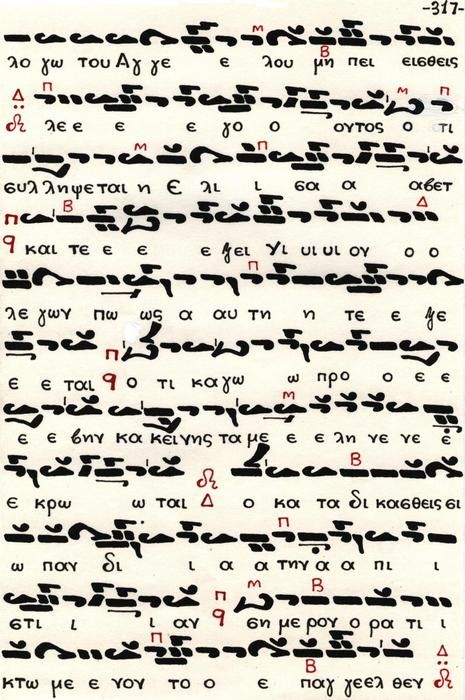 -317-
λο γω του Αγ γε ε λου μη πει εισθεις
λε ε ε ε γο ο ουτος ο τι
συλ ληψεται η Ε λι ι σα α αβετ
και τε ε ε ε ξει Υι υι υι ον ο ο
λε γων πω ως α αυ τη η τε ε ξε
ε ε ται ο τι κα γω ω προ ο ε ε
ε ε βην κα κεινης τα με ε ε λη νε νε ε
ε κρω ω ται ο κα τα δι κασθεις σι
ω παν δι ι α α την α α πι ι
στι ι ι αν ση με ρον ο ρα τι ι
κτω με ε νον το ο ε παγ γεελ θεν